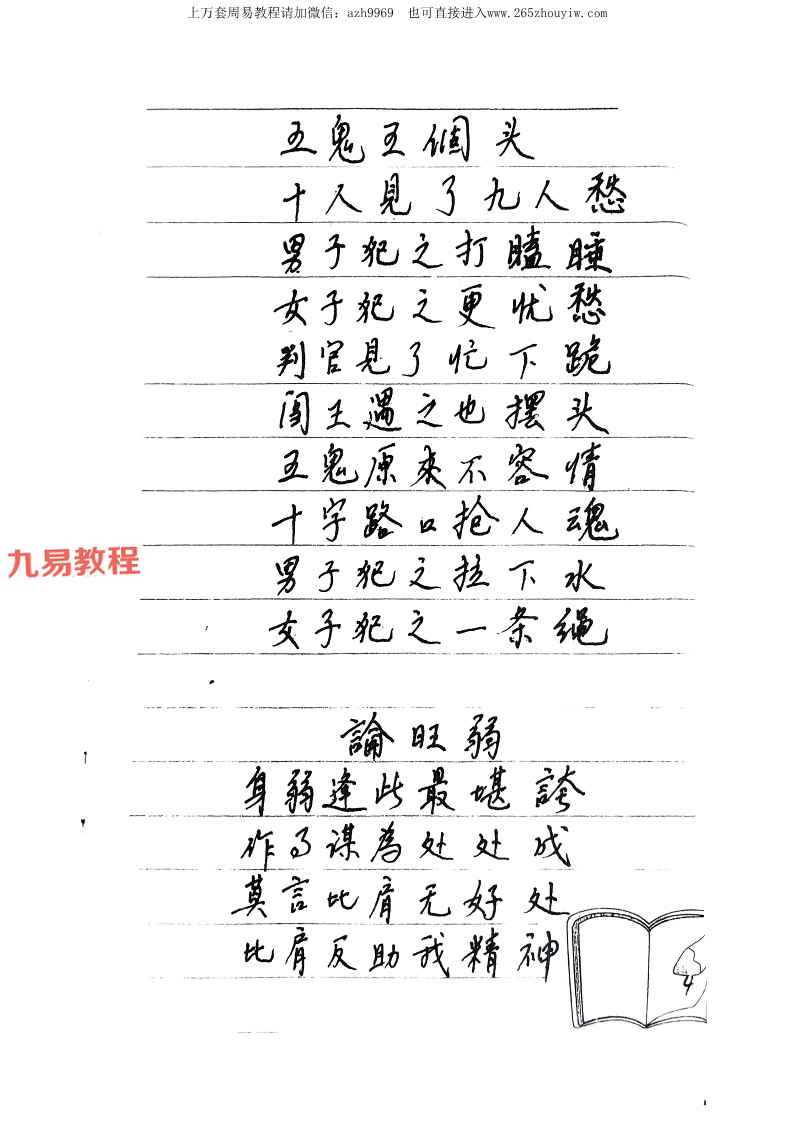 上万套周易教程请加微信：azh9969 也可直接进入www.265zhouyiw.com
五鬼五個头
十人見了九人愁
男子犯之打瞌睡
女子犯之更忧愁
判官見了忙下跪
阎王遇之也摆头
五鬼原來不容情
十字路口抢人魂
九易教程
男子犯之拉下水
女子犯之一条绳
論旺弱
身弱逢此最堪誇
作事谋為处处成
莫言比肩无好处
比肩反助我精神
4